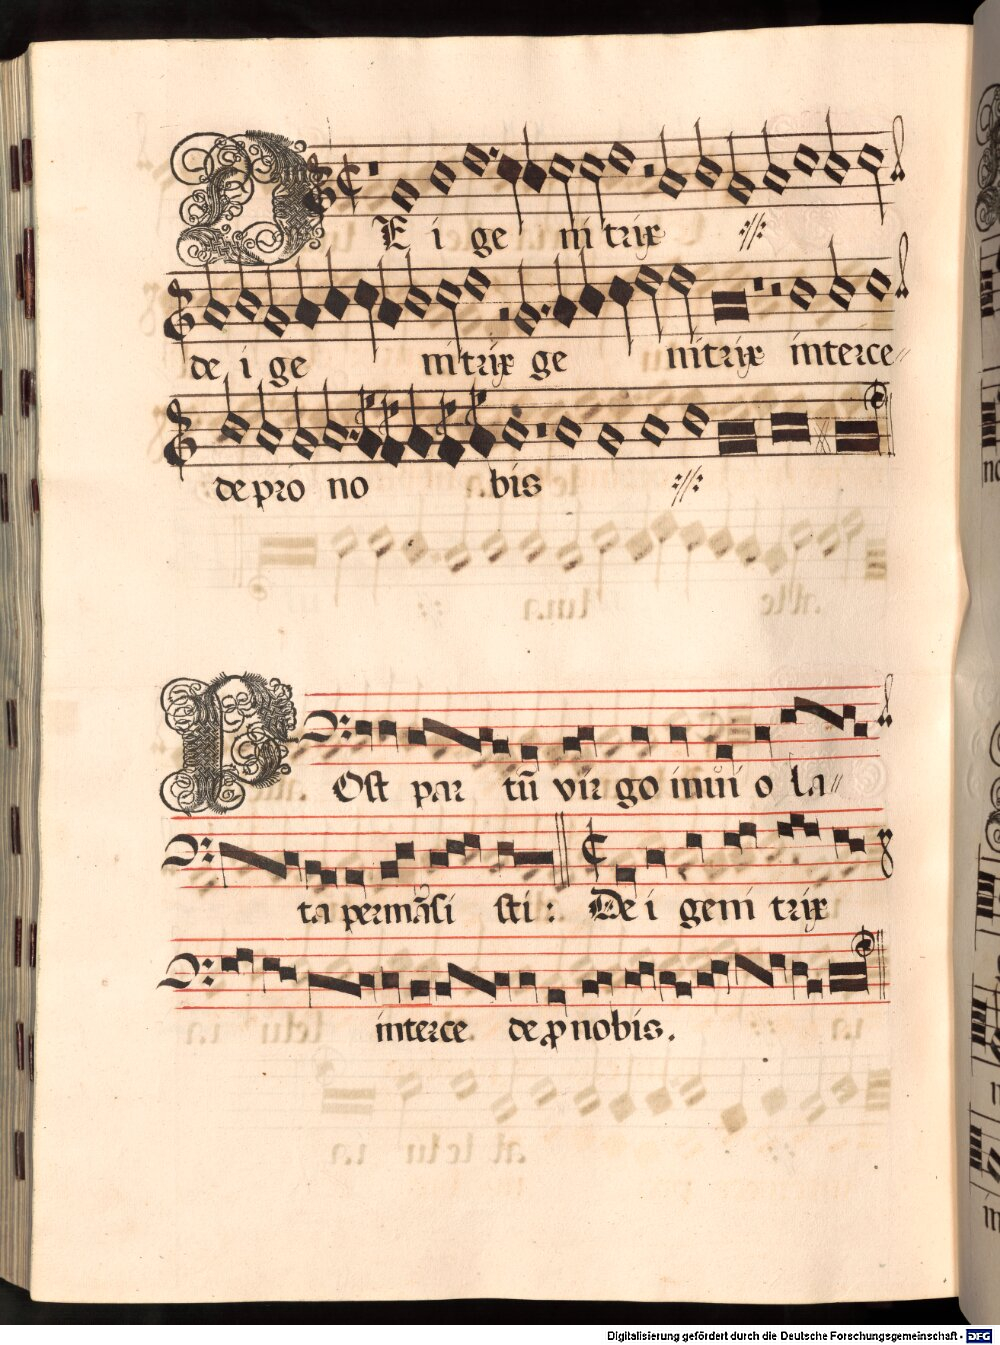 DE i ge nitrix ://:
de i ge nitrix ge nitrix interce//
de pro no bis ://:
POst par tū virgo invi o la//
ta permāsi sti: Dei geni trix
interce de ꝓ nobis.
Digitalisierung gefördert durch die Deutsche Forschungsgemeinschaft - DFG